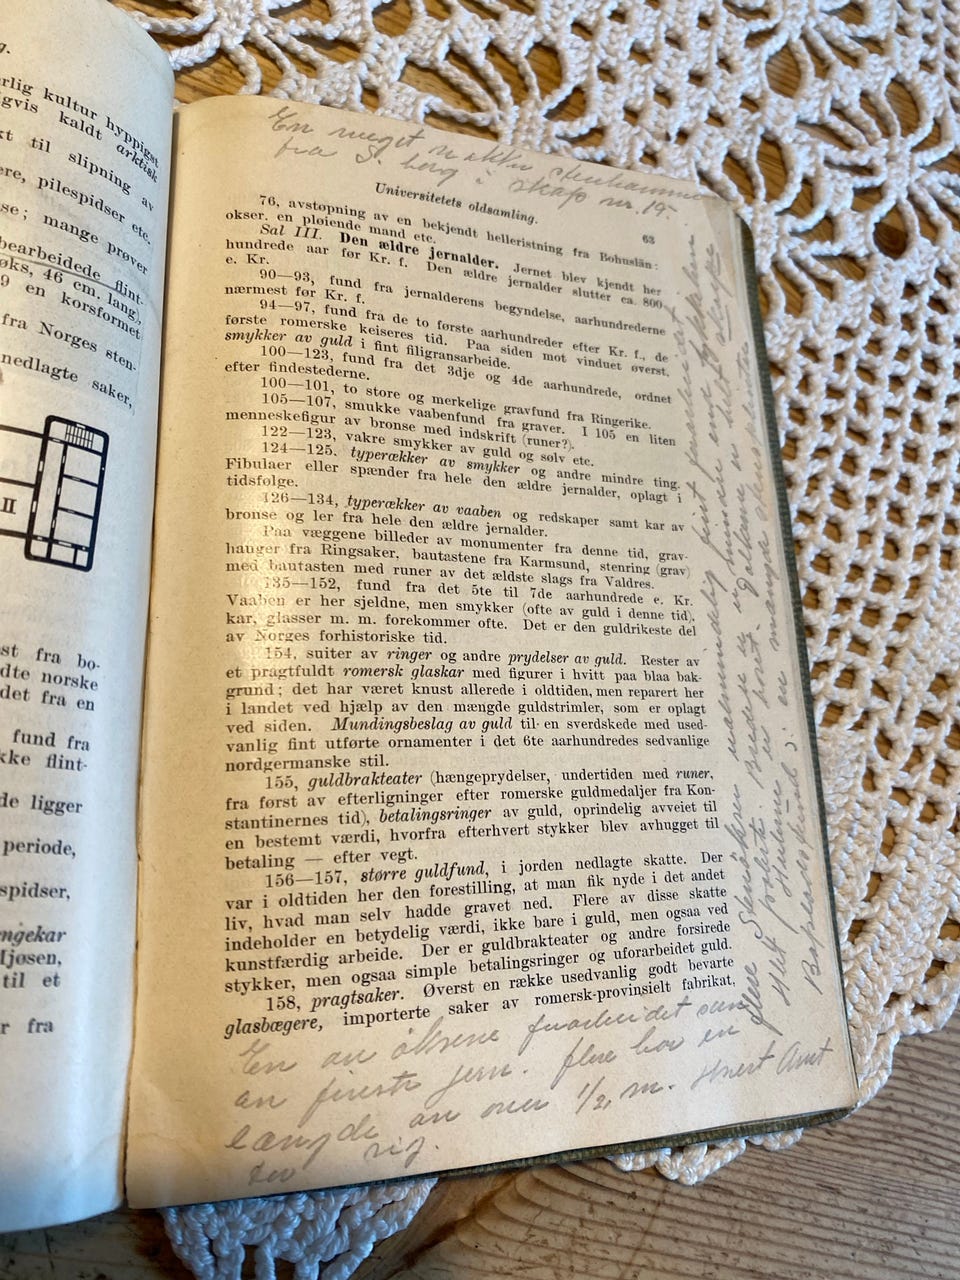 g.
rlig kultur hyppigst
gvis kaldt arktisk
kt til slipning av
ere, pilespidser etc.
se; mange prøver
bearbeidede flint-
øks, 46 cm. lang),
9 en korsformet
fra Norges sten-
nedlagte saker,
II
st fra bo-
dte norske
det fra en
fund fra
kke flint-
de ligger
periode,
spidser,
ngekar
Mjøsen,
til et
r fra
En meget vakker stenhammer
fra S. berg i skap nr. 19.
Universitetets oldsamling.
63
76, avstøpning av en bekjendt helleristning fra Bohuslän:
okser, en pløiende mand etc.
Sal III. Den ældre jernalder. Jernet blev kjendt her
hundrede aar før Kr. f. Den ældre jernalder slutter ca. 800
e. Kr.
90—93, fund fra jernalderens begyndelse, aarhundrederne
nærmest før Kr. f.
94—97, fund fra de to første aarhundreder efter Kr. f., de
første romerske keiseres tid. Paa siden mot vinduet øverst,
smykker av guld i fint filigransarbeide.
100—123, fund fra det 3dje og 4de aarhundrede, ordnet
efter findestederne.
100—101, to store og merkelige gravfund fra Ringerike.
105—107, smukke vaabenfund fra graver. I 105 en liten
menneskefigur av bronse med indskrift (runer?).
122—123, vakre smykker av guld og sølv etc.
124—125, typerækker av smykker og andre mindre ting.
Fibulaer eller spænder fra hele den ældre jernalder, oplagt i
tidsfølge.
126—134, typerækker av vaaben og redskaper samt kar av
bronse og ler fra hele den ældre jernalder.
Paa væggene billeder av monumenter fra denne tid, grav-
hauger fra Ringsaker, bautastene fra Karmsund, stenring (grav)
med bautasten med runer av det ældste slags fra Valdres.
135—152, fund fra det 5te til 7de aarhundrede e. Kr.
Vaaben er her sjeldne, men smykker (ofte av guld i denne tid),
kar, glasser m. m. forekommer ofte. Det er den guldrikeste del
av Norges forhistoriske tid.
154, suiter av ringer og andre prydelser av guld. Rester av
et pragtfuldt romersk glaskar med figurer i hvitt paa blaa bak-
grund; det har været knust allerede i oldtiden, men reparert her
i landet ved hjælp av den mængde guldstrimler, som er oplagt
ved siden. Mundingsbeslag av guld til en sverdskede med used-
vanlig fint utførte ornamenter i det 6te aarhundredes sedvanlige
nordgermanske stil.
155, guldbrakteater (hængeprydelser, undertiden med runer,
fra først av efterligninger efter romerske guldmedaljer fra Kon-
stantinernes tid), betalingsringer av guld, oprindelig avveiet til
en bestemt værdi, hvorfra efterhvert stykker blev avhugget til
betaling — efter vegt.
156—157, større guldfund, i jorden nedlagte skatte. Der
var i oldtiden her den forestilling, at man fik nyde i det andet
liv, hvad man selv hadde gravet ned. Flere av disse skatte
indeholder en betydelig værdi, ikke bare i guld, men ogsaa ved
kunstfærdig arbeide. Der er guldbrakteater og andre forsirede
stykker, men ogsaa simple betalingsringer og uforarbeidet guld.
158, pragtsaker. Øverst en række usedvanlig godt bevarte
glasbægere, importerte saker av romersk-provinsielt fabrikat,
En av øksene forarbeidet som
av fineste jern. flere har en
længde av over 1/2, m.
flere Stenøkser ualmindelig fint